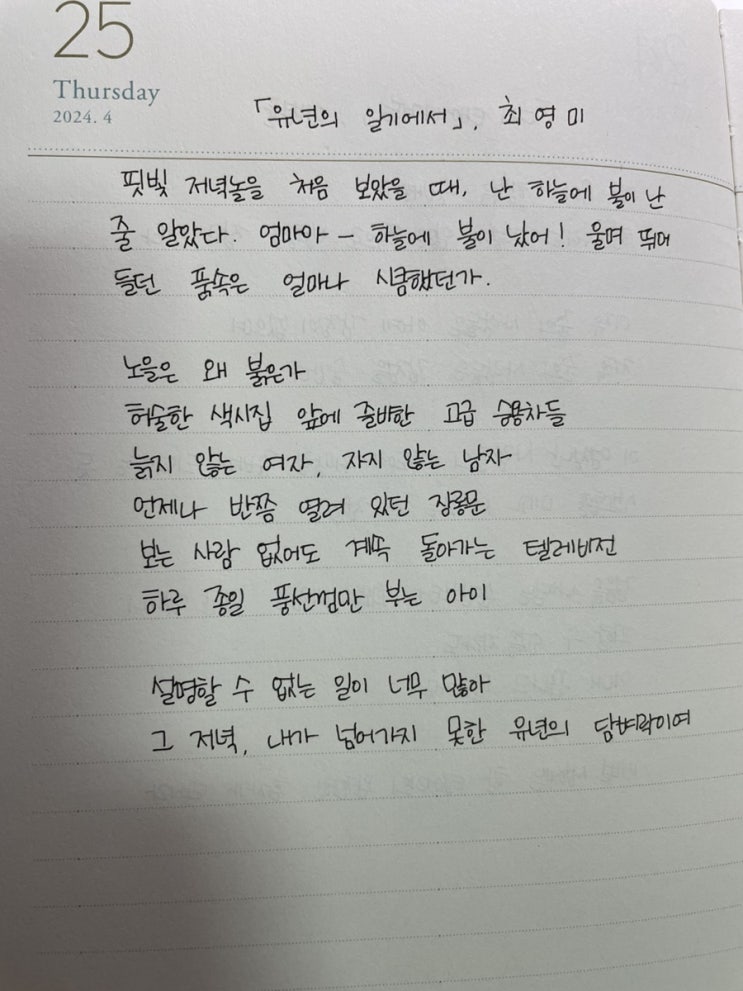 25
Thursday
2024. 4
「유년의 일기에서」, 최영미
핏빛 저녁놀을 처음 보았을 때, 난 하늘에 불이 난
줄 알았다. 엄마아 - 하늘에 불이 났어! 울며 뛰어
들던 품속은 얼마나 시큼했던가.
노을은 왜 붉은가
허술한 색시집 앞에 즐비한 고급 승용차들
늙지 않는 여자, 자지 않는 남자
언제나 반쯤 열려 있던 장롱문
보는 사람 없어도 계속 돌아가는 텔레비전
하루 종일 풍선껌만 부는 아이
설명할 수 없는 일이 너무 많아
그 저녁, 내가 넘어가지 못한 유년의 담벼락이여